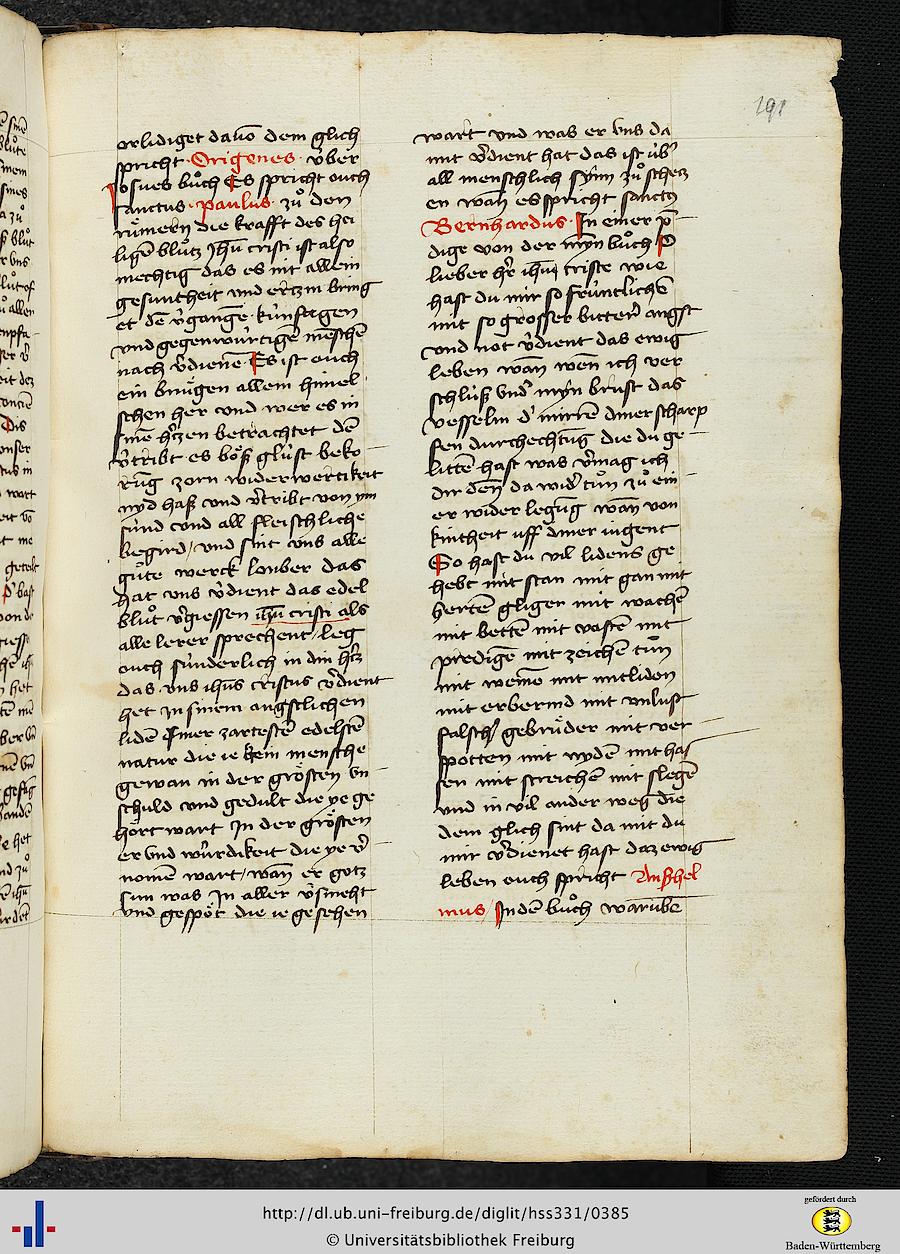 191
erlidiget dauō dem glich
spricht · Origenes · v̈ber
Josues bůch Es spricht ouch
sanctus · paulus · zů den
römern die krafft des hei
ligē blůtz Jhū cristi ist also
mechtig das es nit allein
gesuntheit vnd ertzni bring
et dē v̓gangē · kúnftgen
vnd gegenwúrtigē mēschen
nach v̓dienē Es ist ouch
ein bnügen allem himel
schen her vnd wer es in
sinē h̓tzen betrachtet dē
v̓tribt · es böß glúst beko
rūg zorn widerwertikeit
nyd haß vnd v̓tribt von ym
súnd vnd all fleischliche
begird / vnd sint vns alle
gůte werck louber das
hat vns v̓dient das edel
blůt v̓giessen ihū cristi als
alle lerer sprechent / leg
ouch súnderlich in din h̓tz
das · vns ihūs cristus v̓dient
het In sinem angstlichen
lidē siner zartestē edelstē
natur die ie kein mensche
gewan in der grösten vn
schuld vnd gedult die ye ge
hört wart In der grösten
er vnd wúrdikeit die ye v̓
nomen wart / wān er gotz
sun was In aller v̓smeht
vnd gespöt die ie gesehen
wart vnd was er vns da
mit v̓dient hat das ist úb̓
all menschlich synn zů schetz
en wān es spricht sanctus
Bernhardus · In einer p̄
dige von der myn bůch O
lieber h̓r ihū criste wie
hast du mir so frúntlichē
mit so grosser bitter̓ angst
vnd not v̓dient das ewig
leben wān wēn ich ver
schlúß vnd̓ myn brust das
vesselin d̓ mirrē diner scharp
fen durchechtūg die du ge
littē hast was v̓mag ich
dir dēn da wid̓ tun zů ein
er wider legūg wān von
kintheit vff diner iugent
So hast du vil lidens ge
hebt mit stan mit gan mit
hertē gligen mit wachē
mit bettē mit vastē mit
predigē mit zeichē tůn
mit weinē mit mitliden
mit erbermd mit vnlust
falsch̓ gebrüder mit ver
spotten mit nydē mit has
sen mit streichē mit slegē
vnd in vil ander weg die
dem glich sint da mit du
mir v̓dienet hast daz ewig
leben ouch spricht Anßhel
mus / In dē bůch warūbē
http://dl.ub.uni-freiburg.de/diglit/hss331/0385
© Universitätsbibliothek Freiburg
gefördert durch
Baden-Württemberg